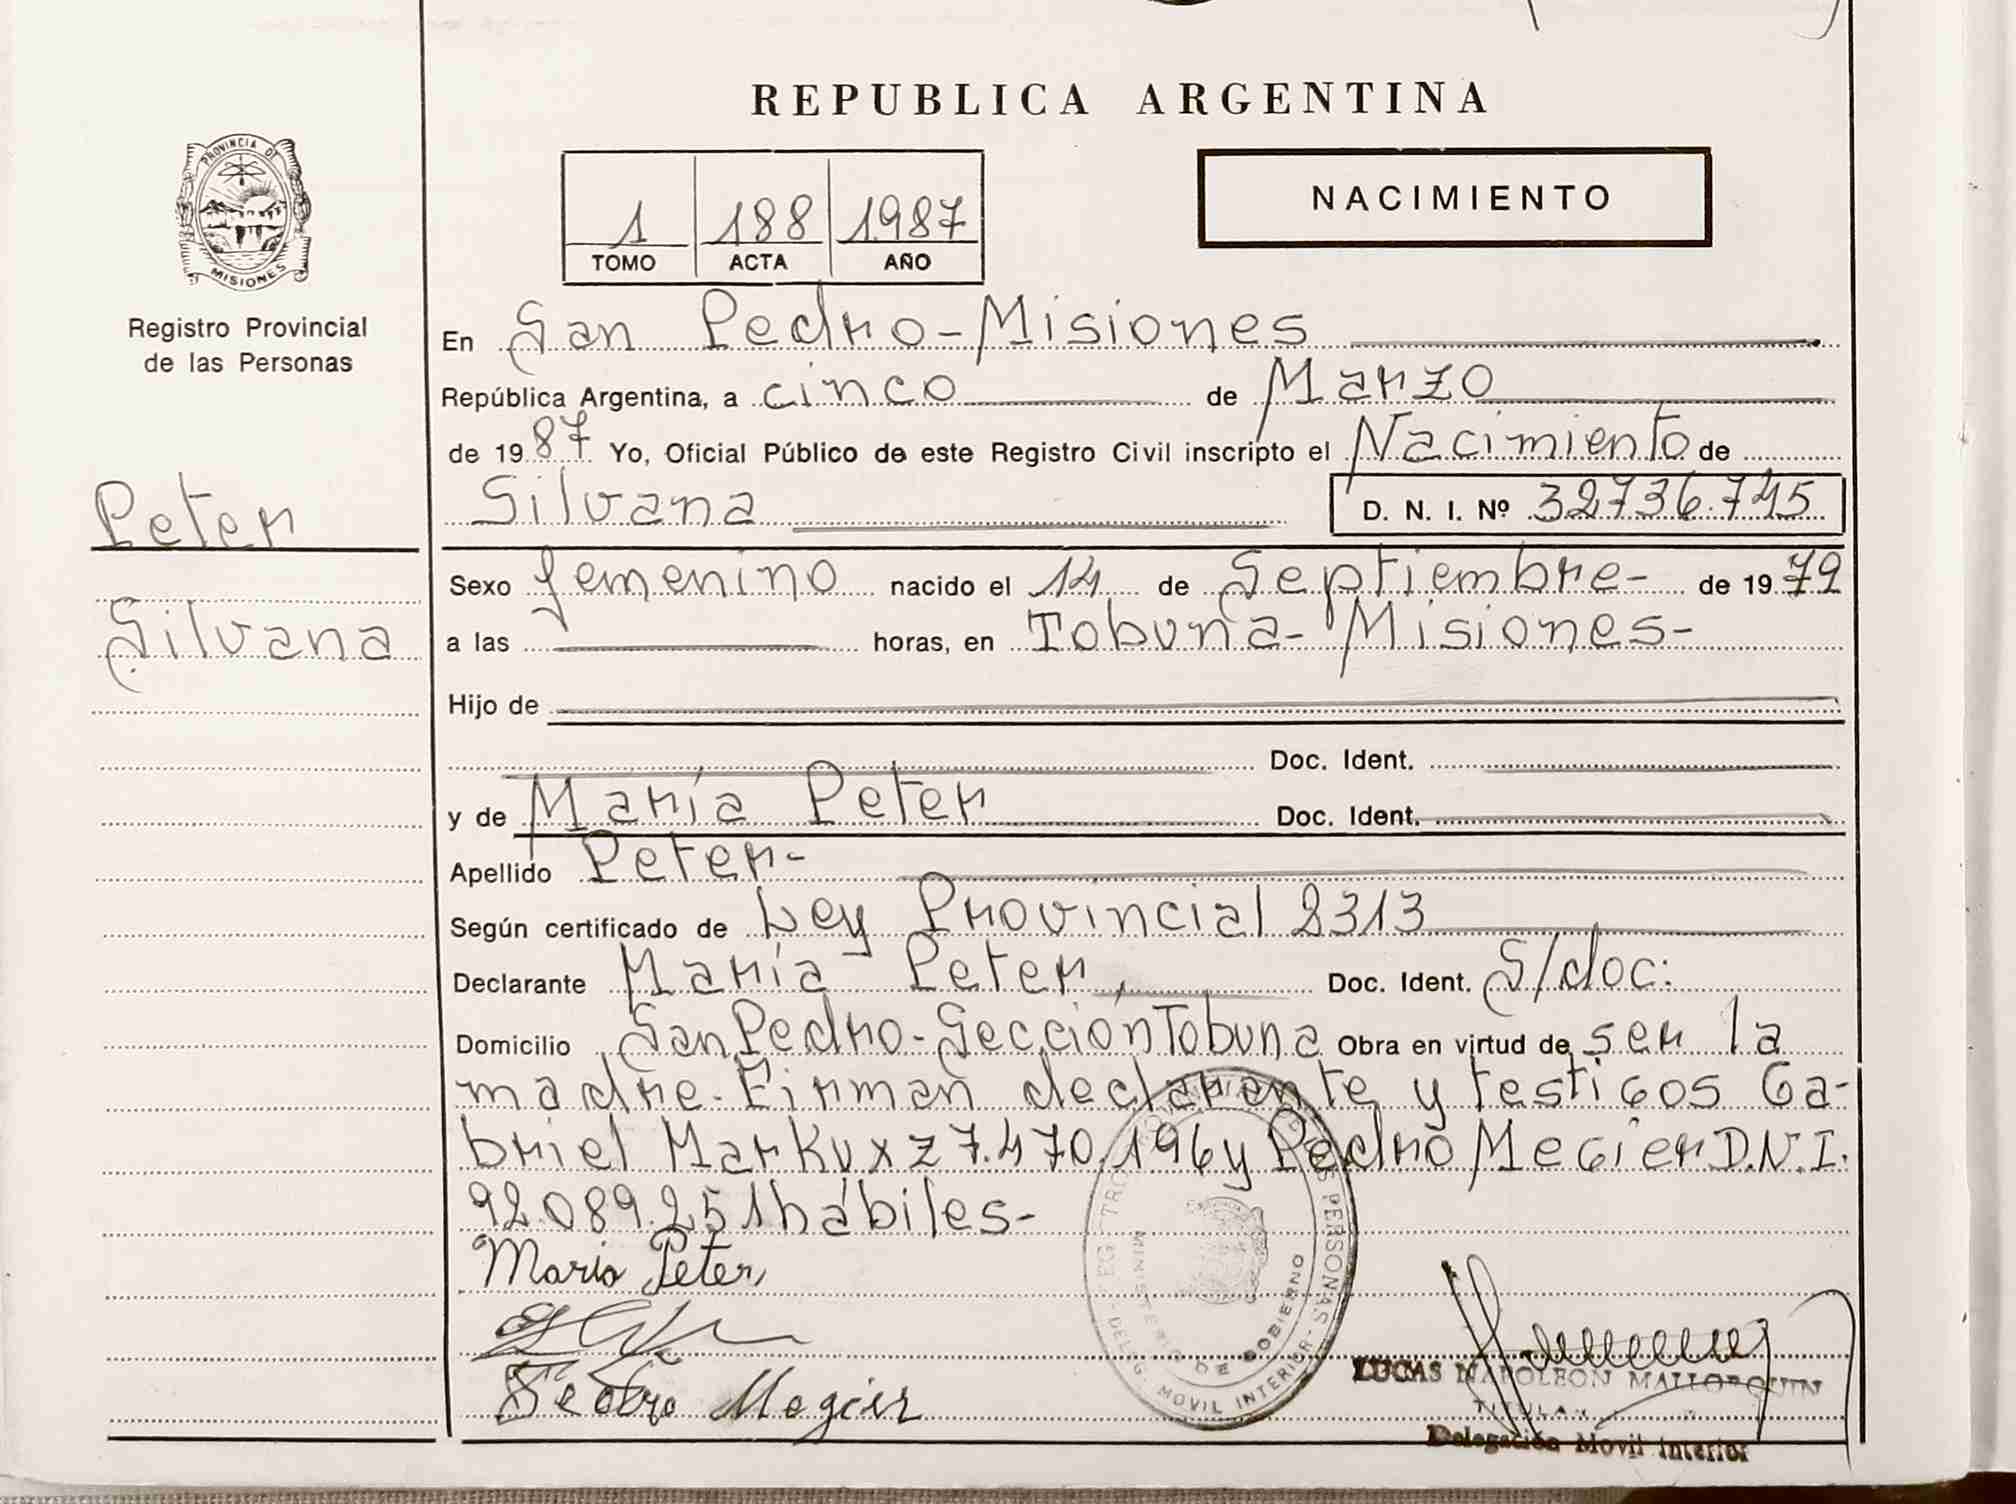 REPUBLICA ARGENTINA
PROVINCIA DE
MISIONES
Registro Provincial
de las Personas
1 188 1987
TOMO ACTA AÑO
NACIMIENTO
En San Pedro-Misiones
República Argentina, a cinco de Marzo
de 1987 Yo, Oficial Público de este Registro Civil inscripto el Nacimiento de
Silvana D. N. I. Nº 32736.745
Peter
Silvana
Sexo femenino nacido el 14 de Septiembre- de 1979
a las horas, en Tobuna- Misiones-
Hijo de
Doc. Ident.
y de María Peter Doc. Ident.
Apellido Peter-
Según certificado de Ley Provincial 2313
Declarante María Peter, Doc. Ident. S/doc:
Domicilio San Pedro-Sección Tobuna Obra en virtud de ser la
madre. Firman declarante y testigos Ga-
briel Markvxz 7.470.196 y Pedro Megier D.N.I.
92.089.251 hábiles-
Maria Peter,
Pedro Megier
MINISTERIO DE GOBIERNO
DELEG. MOVIL INTERIOR
PERSONAS
LUCAS NAPOLEON MALLORQUIN
TITULAR
Delegación Movil Interior